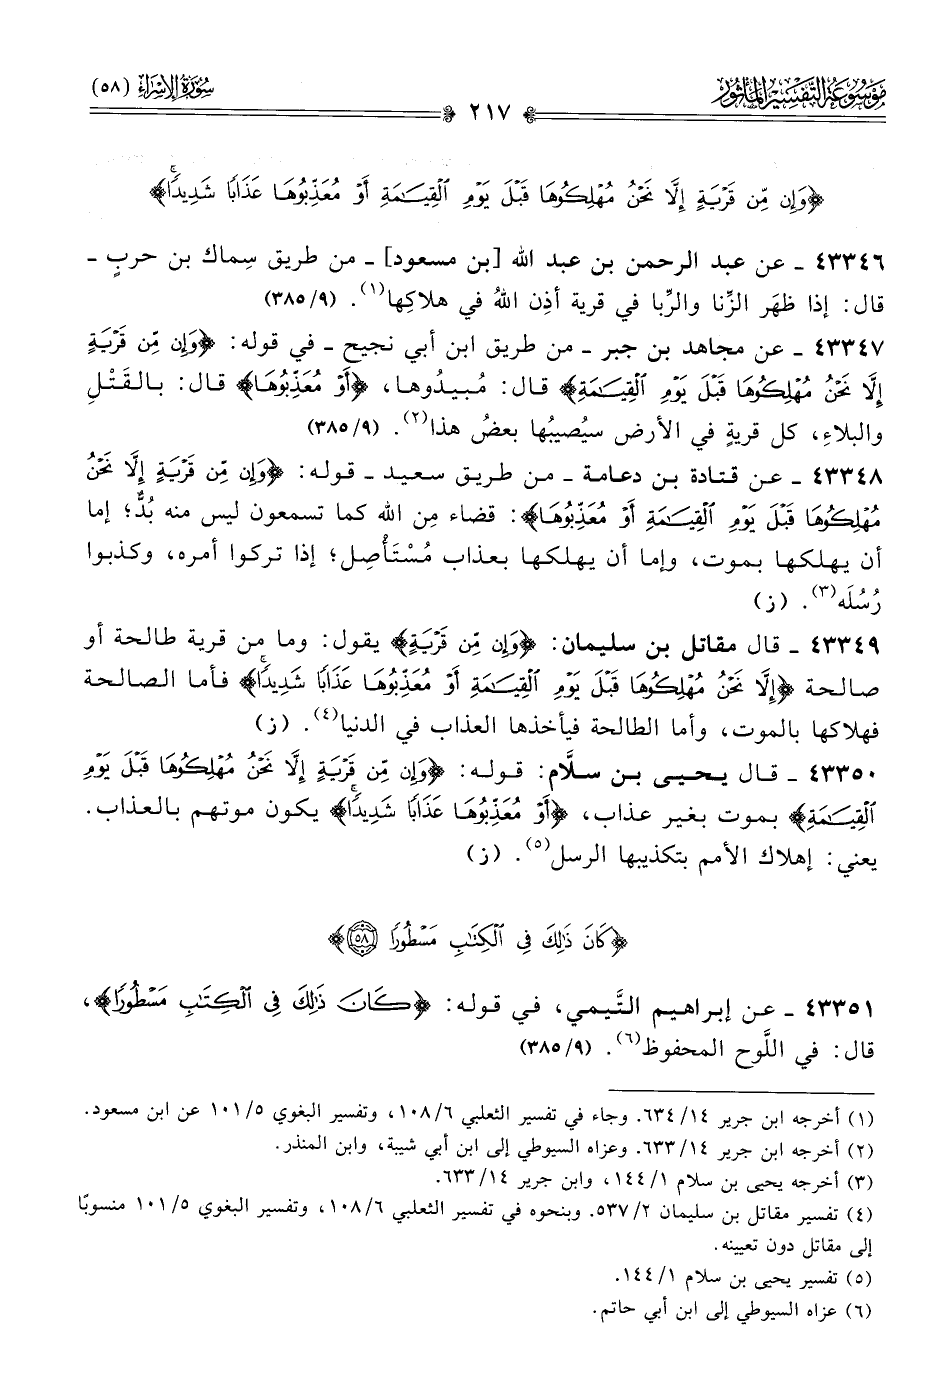 موسوعة التفسير المأثور
سورة الإسراء (٥٨)
٢١٧
﴿وَإِن مِّن قَرْيَةٍ إِلَّا نَحْنُ مُهْلِكُوهَا قَبْلَ يَوْمِ ٱلْقِيَـٰمَةِ أَوْ مُعَذِّبُوهَا عَذَابًا شَدِيدًاۚ﴾
٤٣٣٤٦ ـ عن عبد الرحمن بن عبد الله [بن مسعود] ـ من طريق سِماك بن حربٍ ـ
قال: إذا ظهَر الزِّنا والرِّبا في قرية أذِن اللهُ في هلاكِها(١). (٩/٣٨٥)
٤٣٣٤٧ ـ عن مجاهد بن جبر ـ من طريق ابن أبي نجيح ـ في قوله: ﴿وَإِن مِّن قَرْيَةٍ
إِلَّا نَحْنُ مُهْلِكُوهَا قَبْلَ يَوْمِ ٱلْقِيَـٰمَةِ﴾ قال: مُبيدُوها، ﴿أَوْ مُعَذِّبُوهَا﴾ قال: بالقَتْلِ
والبلاءِ، كل قريةٍ في الأرض سيُصيبُها بعضُ هذا(٢). (٩/٣٨٥)
٤٣٣٤٨ ـ عن قتادة بن دعامة ـ من طريق سعيد ـ قوله: ﴿وَإِن مِّن قَرْيَةٍ إِلَّا نَحْنُ
مُهْلِكُوهَا قَبْلَ يَوْمِ ٱلْقِيَـٰمَةِ أَوْ مُعَذِّبُوهَا﴾: قضاء مِن الله كما تسمعون ليس منه بُدٌّ؛ إما
أن يهلكها بموت، وإما أن يهلكها بعذاب مُسْتَأْصِل؛ إذا تركوا أمره، وكذبوا
رُسُلَه(٣). (ز)
٤٣٣٤٩ ـ قال مقاتل بن سليمان: ﴿وَإِن مِّن قَرْيَةٍ﴾ يقول: وما من قرية طالحة أو
صالحة ﴿إِلَّا نَحْنُ مُهْلِكُوهَا قَبْلَ يَوْمِ ٱلْقِيَـٰمَةِ أَوْ مُعَذِّبُوهَا عَذَابًا شَدِيدًاۚ﴾ فأما الصالحة
فهلاكها بالموت، وأما الطالحة فيأخذها العذاب في الدنيا(٤). (ز)
٤٣٣٥٠ ـ قال يحيى بن سلَّام: قوله: ﴿وَإِن مِّن قَرْيَةٍ إِلَّا نَحْنُ مُهْلِكُوهَا قَبْلَ يَوْمِ
ٱلْقِيَـٰمَةِ﴾ بموت بغير عذاب، ﴿أَوْ مُعَذِّبُوهَا عَذَابًا شَدِيدًاۚ﴾ يكون موتهم بالعذاب.
يعني: إهلاك الأمم بتكذيبها الرسل(٥). (ز)
﴿كَانَ ذَٰلِكَ فِى ٱلْكِتَـٰبِ مَسْطُورًا ٥٨﴾
٤٣٣٥١ ـ عن إبراهيم التَّيمي، في قوله: ﴿كَانَ ذَٰلِكَ فِى ٱلْكِتَـٰبِ مَسْطُورًا﴾،
قال: في اللَّوح المحفوظ(٦). (٩/٣٨٥)
(١) أخرجه ابن جرير ١٤/٦٣٤. وجاء في تفسير الثعلبي ٦/١٠٨، وتفسير البغوي ٥/١٠١ عن ابن مسعود.
(٢) أخرجه ابن جرير ١٤/٦٣٣. وعزاه السيوطي إلى ابن أبي شيبة، وابن المنذر.
(٣) أخرجه يحيى بن سلام ١/١٤٤، وابن جرير ١٤/٦٣٣.
(٤) تفسير مقاتل بن سليمان ٢/٥٣٧. وبنحوه في تفسير الثعلبي ٦/١٠٨، وتفسير البغوي ٥/١٠١ منسوبًا
إلى مقاتل دون تعيينه.
(٥) تفسير يحيى بن سلام ١/١٤٤.
(٦) عزاه السيوطي إلى ابن أبي حاتم.